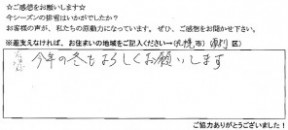 ☆ご感想をお願いします☆
今シーズンの排雪はいかがでしたか?
お客様の声が、私たちの原動力になっています。ぜひ、ご感想をお聞かせ下さい。
※差支えなければ、お住まいの地域をご記入ください→(札幌市)( 区)
今年の冬もよろしくお願いします
ご協力ありがとうございました!